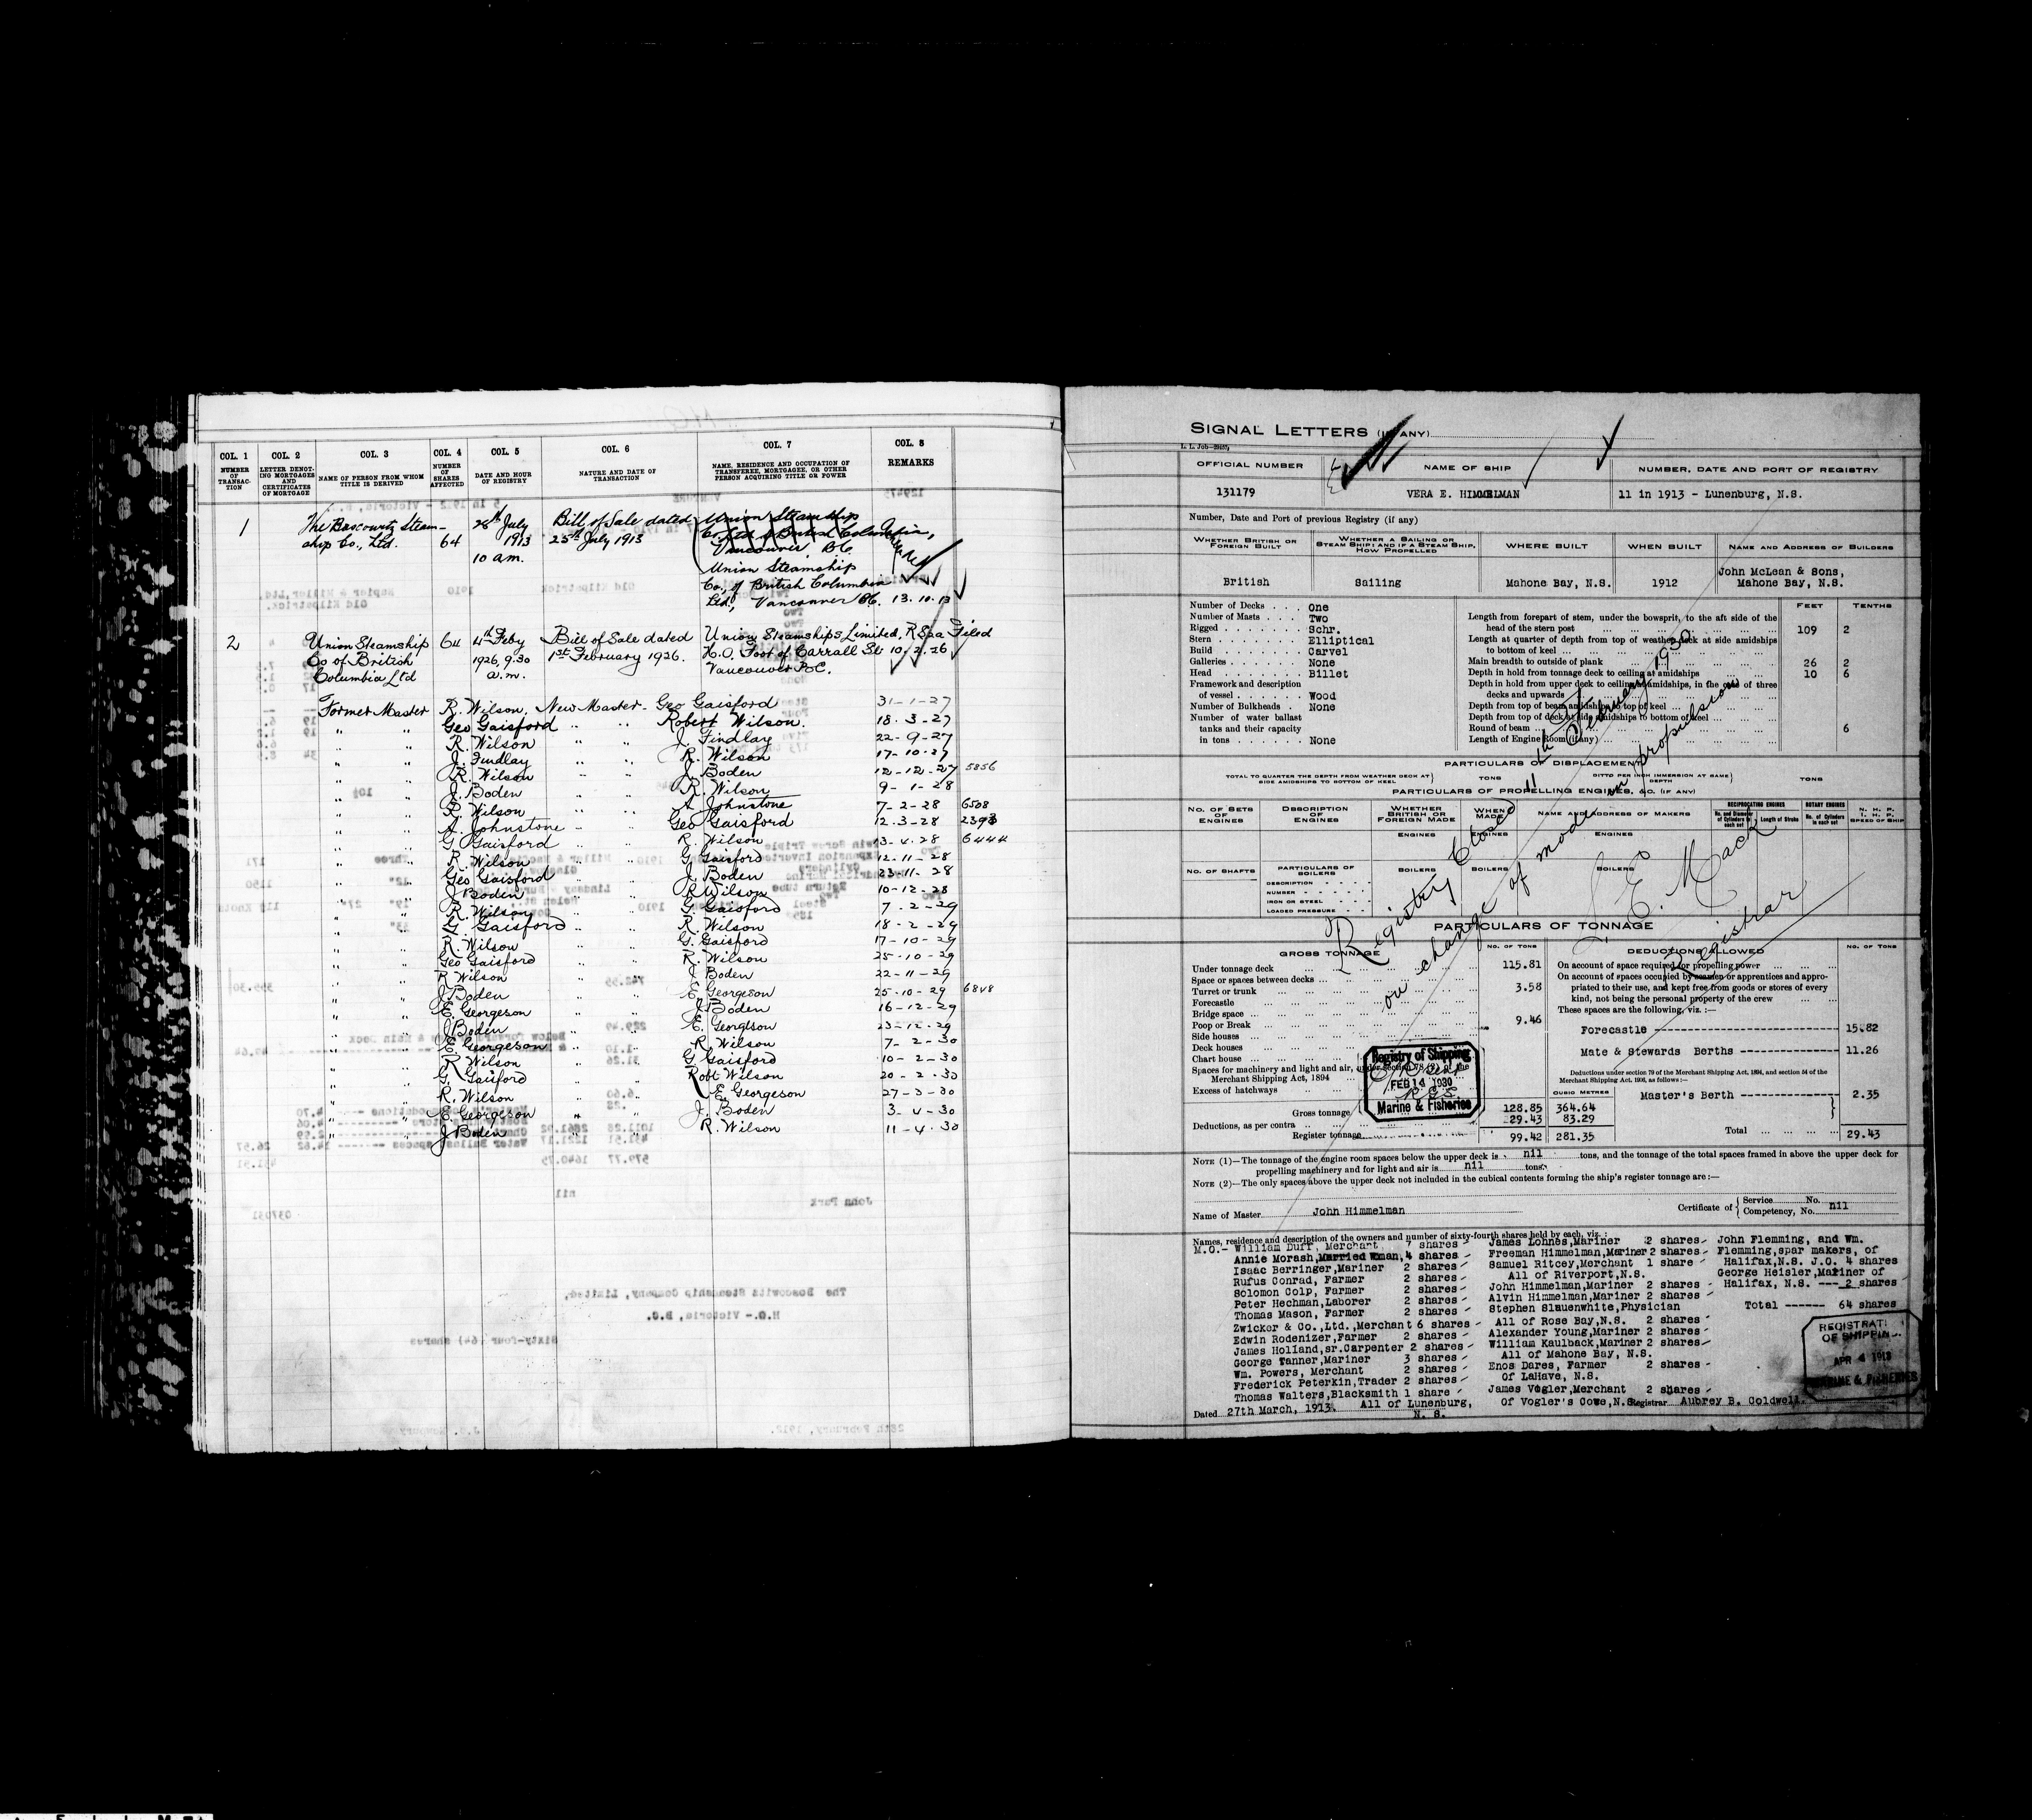 COL. 1 COL. 2 COL. 3 COL. 4 COL. 5 COL. 6 COL. 7 COL. 8
NUMBER OF TRANSAC-TION LETTER DENOT-ING MORTGAGES AND CERTIFICATES OF MORTGAGE NAME OF PERSON FROM WHOM TITLE IS DERIVED NUMBER OF SHARES AFFECTED DATE AND HOUR OF REGISTRY NATURE AND DATE OF TRANSACTION NAME, RESIDENCE AND OCCUPATION OF TRANSFEREE, MORTGAGEE, OR OTHER PERSON ACQUIRING TITLE OR POWER REMARKS
1 The Boscowitz Steam- 28th July Bill of Sale dated Union Steamship
ship Co., Ltd. 64 1913 25th July 1913 Co. Ltd of British Columbia,
10 a.m. Vancouver, B.C.
Union Steamship
Co., of British Columbia
Ltd., Vancouver B.C. 13.10.13
2 Union Steamship 64 4th Feby Bill of Sale dated Union Steamships Limited, Filed
Co of British 1926, 9.30 1st February 1926. H.O. Foot of Carrall St 10.2.26
Columbia Ltd a.m. Vancouver B.C.
Former Master R. Wilson, New Master - Geo Gaisford 31-1-27
" " Geo Gaisford " " Robert Wilson. 18.3-27
" " R. Wilson " " J. Findlay 22-9-27
" " J. Findlay " " R. Wilson 17-10-27
" " R. Wilson " " J. Boden 12-12-27 5856
" " J. Boden " " R. Wilson 9-1-28
" " R. Wilson " " A Johnstone 7-2-28 6508
" " A. Johnstone " " Geo Gaisford 12.3-28 2393
" " G Gaisford " " R. Wilson 13-4.28 6444
" " R. Wilson " " G Gaisford 12-11-28
" " Geo Gaisford " " J. Boden 23-11-28
" " J Boden " " R Wilson 10-12-28
" " R. Wilson " " G. Gaisford 7-2-29
" " G. Gaisford " " R. Wilson 18-2-29
" " R. Wilson " " G. Gaisford 17-10-29
" " Geo Gaisford " " R. Wilson 25-10-29
" " R Wilson " " J Boden 22-11-29
" " J Boden " " E Georgeson 25-10-29 6848
" " E. Georgeson " " J Boden 16-12-29
" " J Boden " " E. Georgeson 23-12-29
" " E. Georgeson " " R Wilson 7-2-30
" " R Wilson " " G Gaisford 10-2-30
" " G. Gaisford " " Robt Wilson 20-2-30
" " R. Wilson " " E. Georgeson 27-3-30
" " E. Georgeson " " J. Boden 3-4-30
" " J Boden " " R. Wilson 11-4.30
SIGNAL LETTERS (IF ANY)
OFFICIAL NUMBER NAME OF SHIP NUMBER, DATE AND PORT OF REGISTRY
131179 VERA E. HIMMELMAN 11 in 1913 - Lunenburg, N.S.
Number, Date and Port of previous Registry (if any)
WHETHER BRITISH OR FOREIGN BUILT WHETHER A SAILING OR STEAM SHIP; AND IF A STEAM SHIP, HOW PROPELLED WHERE BUILT WHEN BUILT NAME AND ADDRESS OF BUILDERS
British Sailing Mahone Bay, N.S. 1912 John McLean & Sons, Mahone Bay, N.S.
FEET TENTHS
Number of Decks . . . One
Number of Masts . . . Two
Rigged . . . Schr.
Stern . . . Elliptical
Build . . . Carvel
Galleries . . . None
Head . . . Billet
Framework and description
of vessel . . . Wood
Number of Bulkheads . None
Number of water ballast
tanks and their capacity
in tons . . . None
Length from forepart of stem, under the bowsprit, to the aft side of the
head of the stern post 109 2
Length at quarter of depth from top of weather deck at side amidships
to bottom of keel
Main breadth to outside of plank 26 2
Depth in hold from tonnage deck to ceiling at amidships 10 6
Depth in hold from upper deck to ceiling at amidships, in the case of three
decks and upwards
Depth from top of beam amidships to top of keel
Depth from top of deck at side amidships to bottom of keel
Round of beam 6
Length of Engine Room (if any)
PARTICULARS OF DISPLACEMENT
TOTAL TO QUARTER THE DEPTH FROM WEATHER DECK AT SIDE AMIDSHIPS TO BOTTOM OF KEEL TONS DITTO PER INCH IMMERSION AT SAME DEPTH TONS
PARTICULARS OF PROPELLING ENGINES, &C. (IF ANY)
NO. OF SETS OF ENGINES DESCRIPTION OF ENGINES WHETHER BRITISH OR FOREIGN MADE WHEN MADE NAME AND ADDRESS OF MAKERS RECIPROCATING ENGINES ROTARY ENGINES N. H. P. I. H. P. SPEED OF SHIP
No. and Diameter of Cylinders in each set Length of Stroke No. of Cylinders in each set
ENGINES ENGINES ENGINES
NO. OF SHAFTS PARTICULARS OF BOILERS BOILERS BOILERS BOILERS
DESCRIPTION
NUMBER
IRON OR STEEL
LOADED PRESSURE
Registry Closed 11th February 1930
on change of mode in propulsion
J E. Mack
Registrar
PARTICULARS OF TONNAGE
GROSS TONNAGE NO. OF TONS DEDUCTIONS ALLOWED NO. OF TONS
Under tonnage deck 115.81
Space or spaces between decks
Turret or trunk 3.58
Forecastle
Bridge space
Poop or Break 9.46
Side houses
Deck houses
Chart house
Spaces for machinery and light and air, under section 78 (2) of the
Merchant Shipping Act, 1894
Excess of hatchways
CUBIC METRES
Gross tonnage 128.85 364.64
Deductions, as per contra 29.43 83.29
Register tonnage 99.42 281.35
On account of space required for propelling power
On account of spaces occupied by seamen or apprentices and appro-
priated to their use, and kept free from goods or stores of every
kind, not being the personal property of the crew
These spaces are the following, viz. :—
Forecastle 15.82
Mate & Stewards Berths 11.26
Deductions under section 79 of the Merchant Shipping Act, 1894, and section 54 of the
Merchant Shipping Act, 1906, as follows:—
Master's Berth 2.35
Total 29.43
Registry of Shipping
FEB 14 1930
R.G.S.
Marine & Fisheries
NOTE (1)—The tonnage of the engine room spaces below the upper deck is nil tons, and the tonnage of the total spaces framed in above the upper deck for
propelling machinery and for light and air is nil tons.
NOTE (2)—The only spaces above the upper deck not included in the cubical contents forming the ship's register tonnage are :—
Name of Master John Himmelman Certificate of Service No. Competency, No. nil
Names, residence and description of the owners and number of sixty-fourth shares held by each, viz. :
M.O.- William Duff, Merchant, 7 shares
Annie Morash, Married Woman, 4 shares
Isaac Berringer, Mariner 2 shares
Rufus Conrad, Farmer 2 shares
Solomon Colp, Farmer 2 shares
Peter Hechman, Laborer 2 shares
Thomas Mason, Farmer 2 shares
Zwicker & Co., Ltd., Merchant 6 shares
Edwin Rodenizer, Farmer 2 shares
James Holland, sr. Carpenter 2 shares
George Tanner, Mariner 3 shares
Wm. Powers, Merchant 2 shares
Frederick Peterkin, Trader 2 shares
Thomas Walters, Blacksmith 1 share
All of Lunenburg, N. S.
James Lohnes, Mariner 2 shares
Freeman Himmelman, Mariner 2 shares
Samuel Ritcey, Merchant 1 share
All of Riverport, N.S.
John Himmelman, Mariner 2 shares
Alvin Himmelman, Mariner 2 shares
Stephen Slauenwhite, Physician
All of Rose Bay, N.S. 2 shares
Alexander Young, Mariner 2 shares
William Kaulback, Mariner 2 shares
All of Mahone Bay, N.S.
Enos Dares, Farmer 2 shares
Of LaHave, N.S.
James Vogler, Merchant 2 shares
Of Vogler's Cove, N.S.
John Flemming, and Wm.
Flemming, spar makers, of
Halifax, N.S. J.O. 4 shares
George Heisler, Mariner of
Halifax, N.S. --- 2 shares
Total ------ 64 shares
REGISTRAT
OF SHIPPIN
APR 4 1913
MARINE & FISHERIES
Dated 27th March, 1913. Registrar Aubrey B. Coldwell.